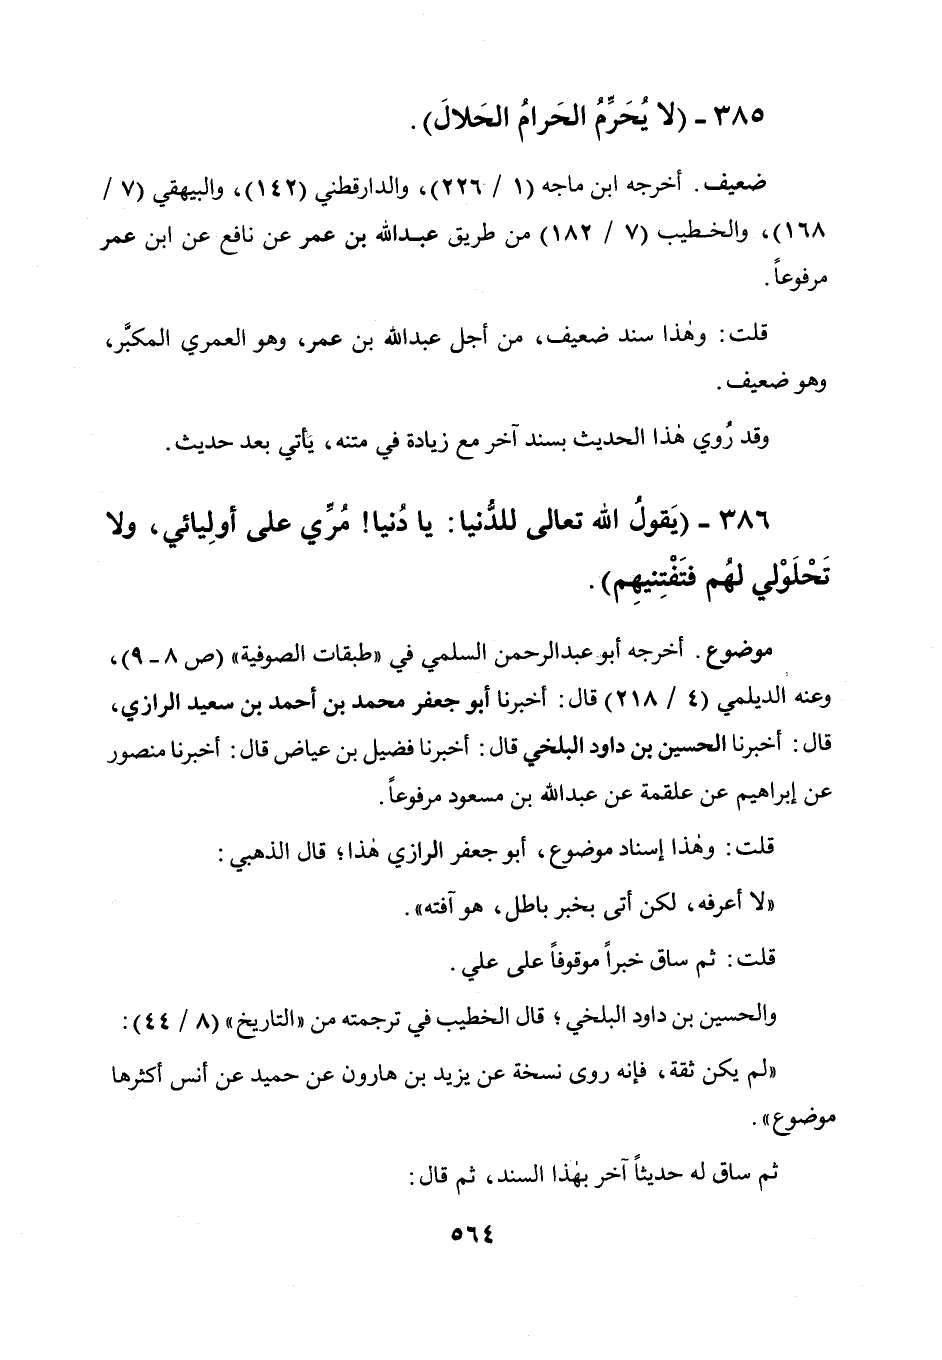 ٣٨٥ ـ (لا يُحَرِّمُ الحَرامُ الحَلالَ).
ضعيف. أخرجه ابن ماجه (١ / ٢٢٦)، والدارقطني (١٤٢)، والبيهقي (٧ /
١٦٨)، والخطيب (٧ / ١٨٢) من طريق عبدالله بن عمر عن نافع عن ابن عمر
مرفوعاً.
قلت: وهٰذا سند ضعيف، من أجل عبدالله بن عمر، وهو العمري المكبَّر،
وهو ضعيف.
وقد رُوي هٰذا الحديث بسند آخر مع زيادة في متنه، يأتي بعد حديث.
٣٨٦ ـ (يَقولُ الله تعالى للدُّنيا: يا دُنيا! مُرِّي على أولِيائي، ولا
تَحْلَوْلي لهُم فتَفْتِنيهِم).
موضوع. أخرجه أبو عبدالرحمن السلمي في «طبقات الصوفية» (ص ٨ ـ ٩)،
وعنه الديلمي (٤ / ٢١٨) قال: أخبرنا أبو جعفر محمد بن أحمد بن سعيد الرازي،
قال: أخبرنا الحسين بن داود البلخي قال: أخبرنا فضيل بن عياض قال: أخبرنا منصور
عن إبراهيم عن علقمة عن عبدالله بن مسعود مرفوعاً.
قلت: وهٰذا إسناد موضوع، أبو جعفر الرازي هٰذا؛ قال الذهبي:
«لا أعرفه، لكن أتى بخبر باطل، هو آفته».
قلت: ثم ساق خبراً موقوفاً على علي.
والحسين بن داود البلخي؛ قال الخطيب في ترجمته من «التاريخ» (٨ / ٤٤):
«لم يكن ثقة، فإنه روى نسخة عن يزيد بن هارون عن حميد عن أنس أكثرها
موضوع».
ثم ساق له حديثاً آخر بهٰذا السند، ثم قال:
٥٦٤